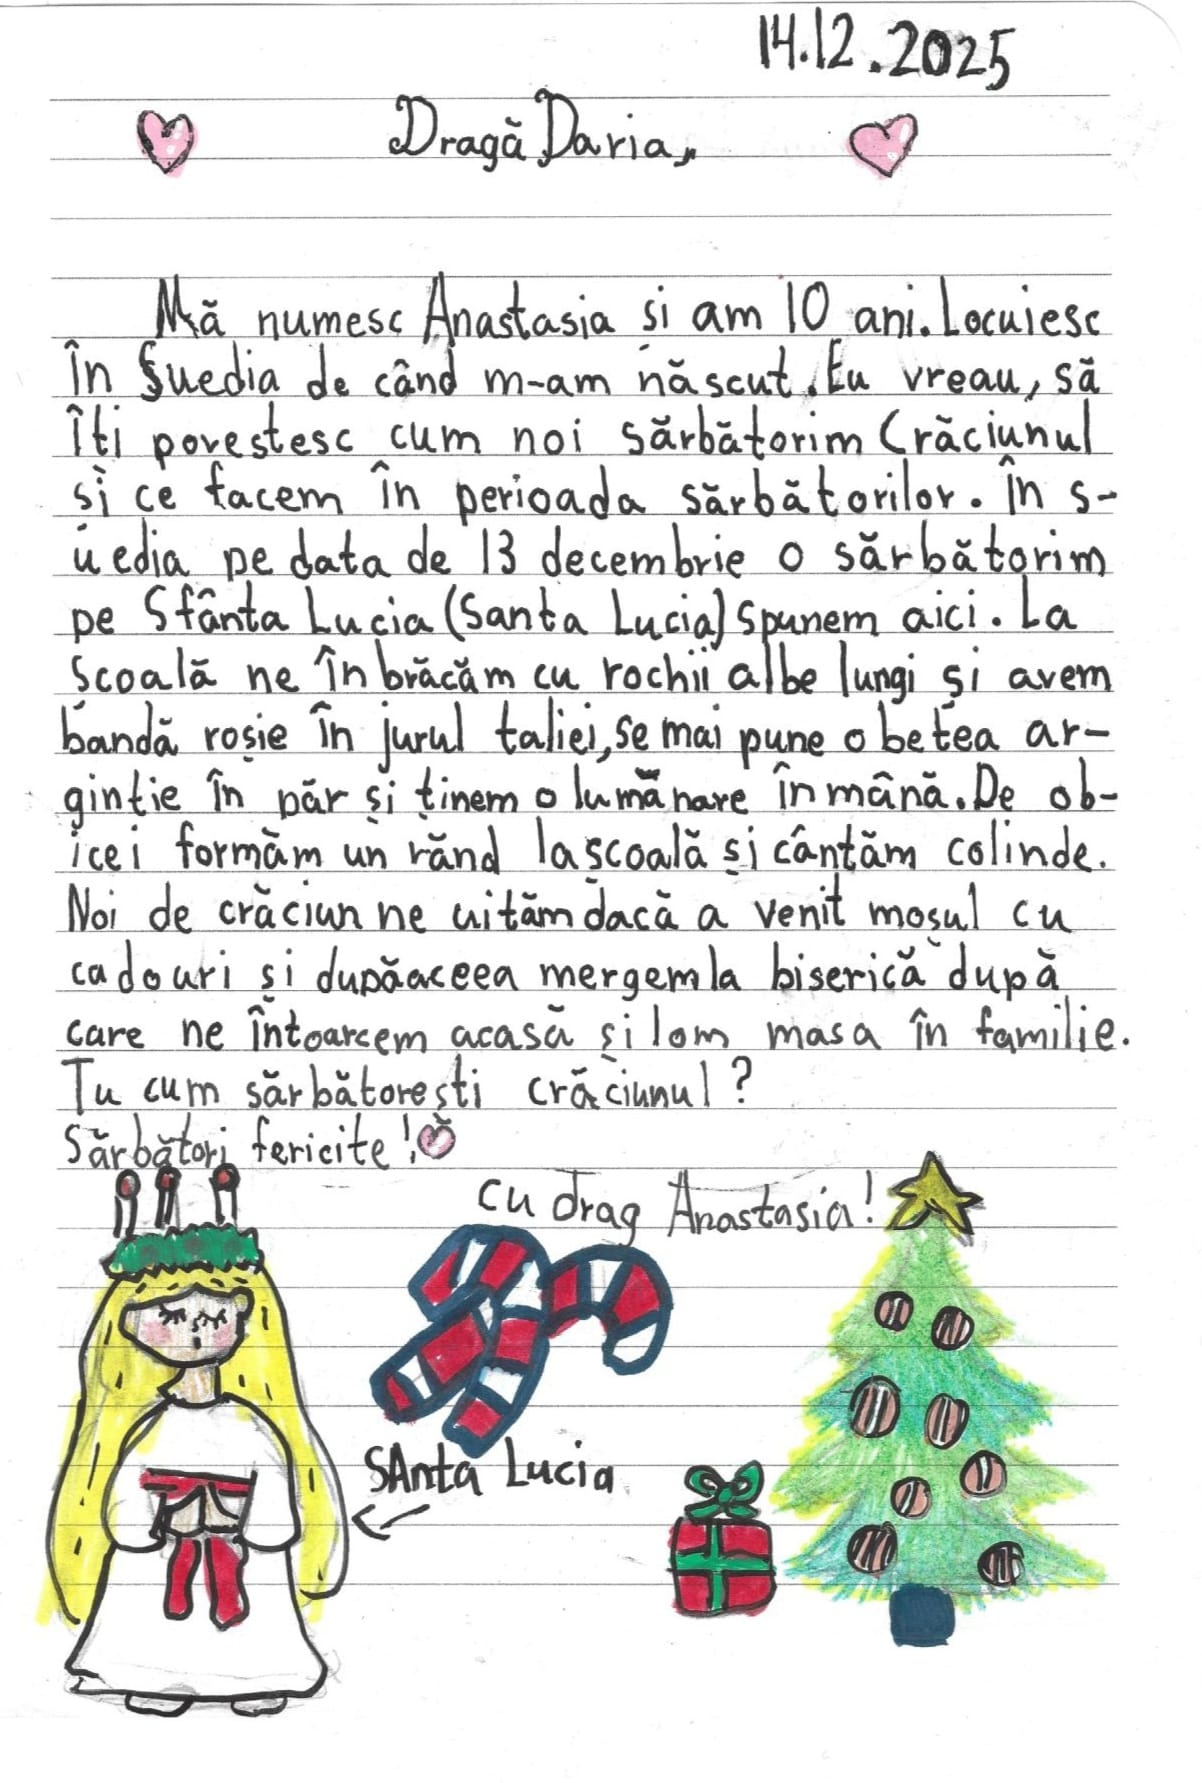 14.12.2025
Dragă Daria,
Mă numesc Anastasia și am 10 ani. Locuiesc
în Suedia de când m-am născut. Eu vreau, să
îți povestesc cum noi sărbătorim Crăciunul
și ce facem în perioada sărbătorilor. În s-
uedia pe data de 13 decembrie o sărbătorim
pe Sfânta Lucia (Santa Lucia) spunem aici. La
școală ne înbrăcăm cu rochii albe lungi și avem
bandă roșie în jurul taliei, se mai pune o betea ar-
gintie în păr și ținem o lumănare în mână. De ob-
icei formăm un rănd la școală și cântăm colinde.
Noi de crăciun ne uităm dacă a venit moșul cu
cadouri și dupăaceea mergem la biserică după
care ne întoarcem acasă și lom masa în familie.
Tu cum sărbătorești crăciunul?
Sărbători fericite!
cu drag Anastasia!
SAnta Lucia